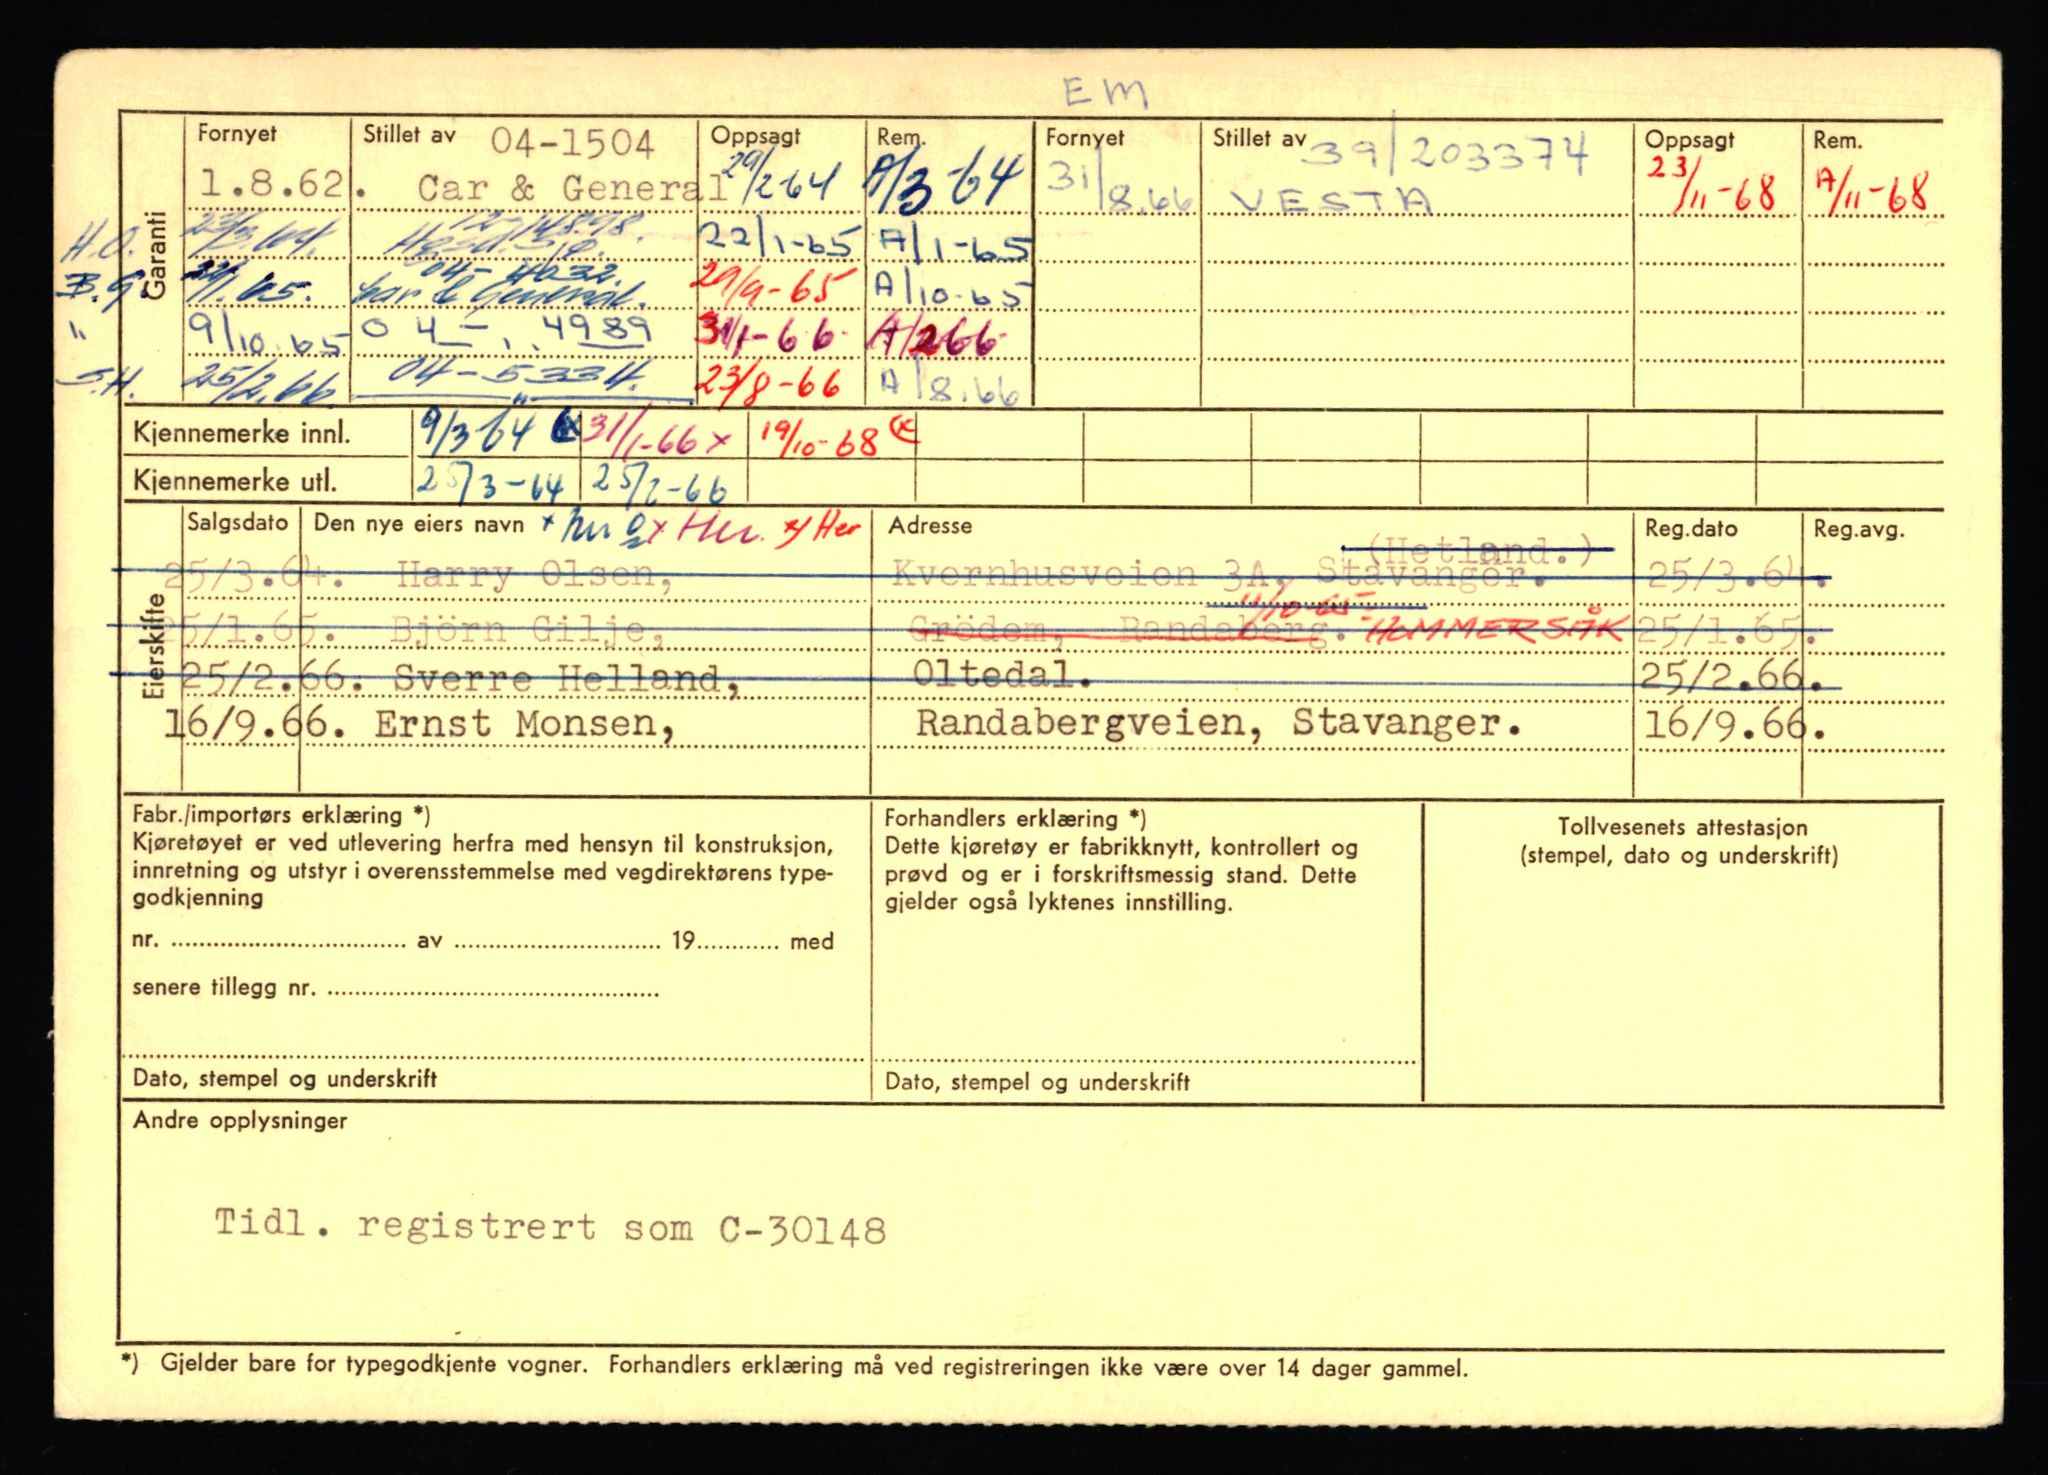 EM
Garanti
Fornyet Stillet av 04-1504 Oppsagt Rem. Fornyet Stillet av 39/203374 Oppsagt Rem.
1.8.62. Car & General 29/2-64 A/3-64 31/8.66 VESTA 23/11-68 A/11-68
H.O. 22/1-65 A/1-65
B.G. 04-4032.
Car & General. 29/9-65 A/10.65
" 9/10.65 04- „ 4989 31/1-66 A/2 66
S.H. 25/2.66. 04-5334. 23/8-66 A/8.66
Kjennemerke innl. 9/3-64 31/1-66 x 19/10-68
Kjennemerke utl. 25/3-64 25/2-66
Eierskifte
Salgsdato Den nye eiers navn x Her. Her Adresse Reg.dato Reg.avg.
(Hetland.)
25/3.64. Harry Olsen, Kvernhusveien 3A. Stavanger. 25/3.64.
11/10-65.
25/1.65. Björn Gilje, Grödem, Randaberg. HOMMERSÅK 25/1.65.
25/2.66. Sverre Helland, Oltedal. 25/2.66.
16/9.66. Ernst Monsen, Randabergveien, Stavanger. 16/9.66.
Fabr./importørs erklæring *)
Kjøretøyet er ved utlevering herfra med hensyn til konstruksjon,
innretning og utstyr i overensstemmelse med vegdirektørens type-
godkjenning
nr. av 19 med
senere tillegg nr.
Dato, stempel og underskrift
Forhandlers erklæring *)
Dette kjøretøy er fabrikknytt, kontrollert og
prøvd og er i forskriftsmessig stand. Dette
gjelder også lyktenes innstilling.
Dato, stempel og underskrift
Tollvesenets attestasjon
(stempel, dato og underskrift)
Andre opplysninger
Tidl. registrert som C-30148
*) Gjelder bare for typegodkjente vogner. Forhandlers erklæring må ved registreringen ikke være over 14 dager gammel.